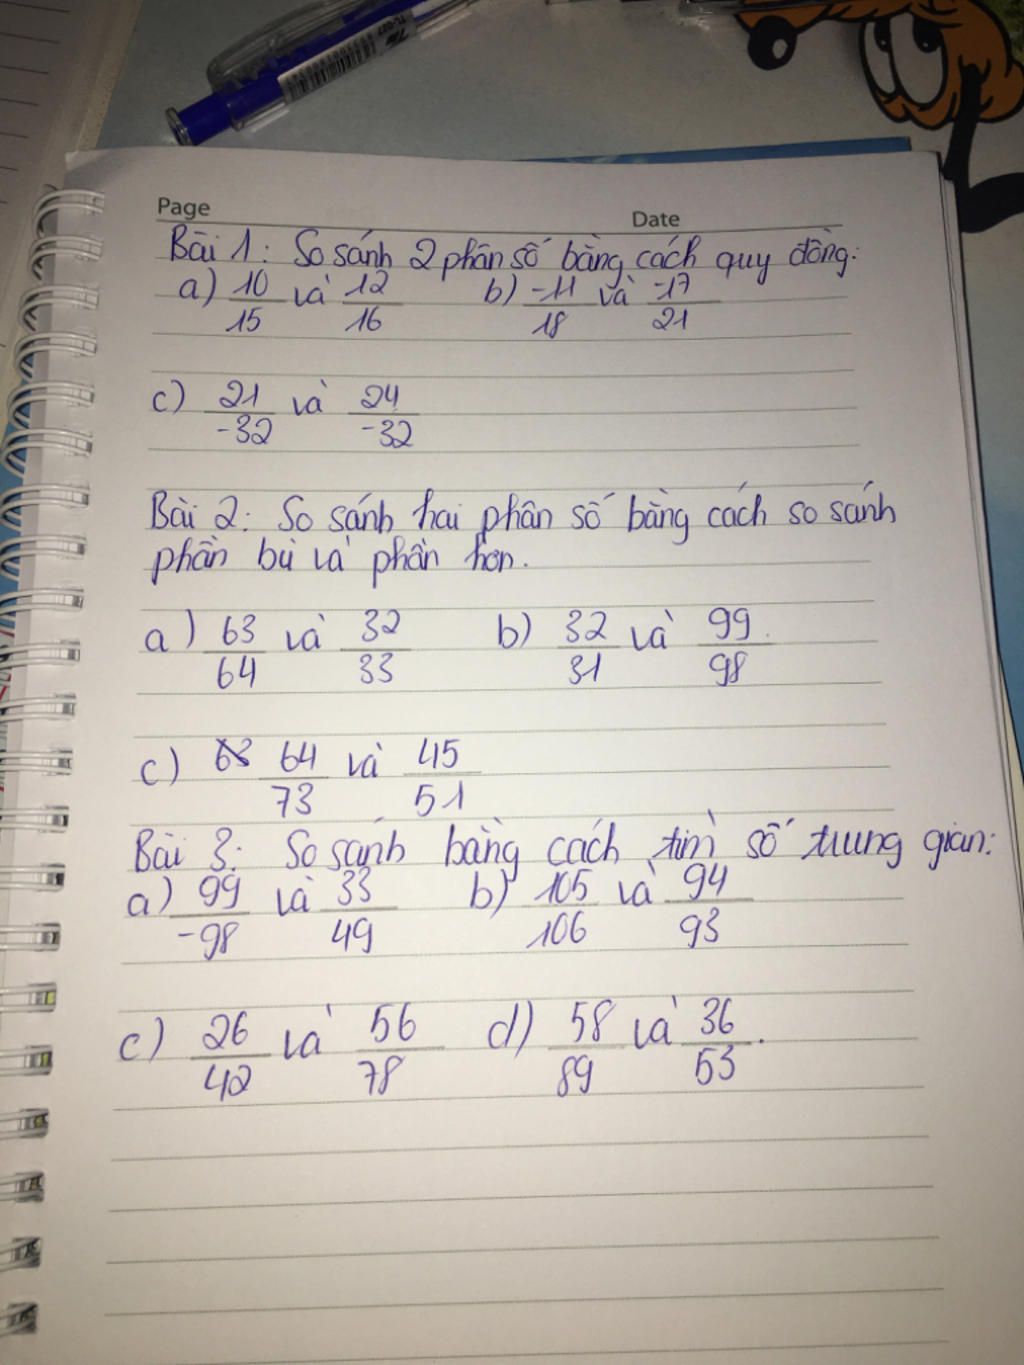 Page Date
Bài 1: So sánh 2 phân số bằng cách quy đồng:
a) 10/15 và 12/16 b) -11/18 và -17/21
c) 21/-32 và 24/-32
Bài 2: So sánh hai phân số bằng cách so sánh
phần bù và phần hơn.
a) 63/64 và 32/33 b) 32/31 và 99/98
c) 64/73 và 45/51
Bài 3: So sánh bằng cách tìm số trung gian:
a) 99/-98 và 33/49 b) 105/106 và 94/93
c) 26/42 và 56/78 d) 58/89 và 36/53.